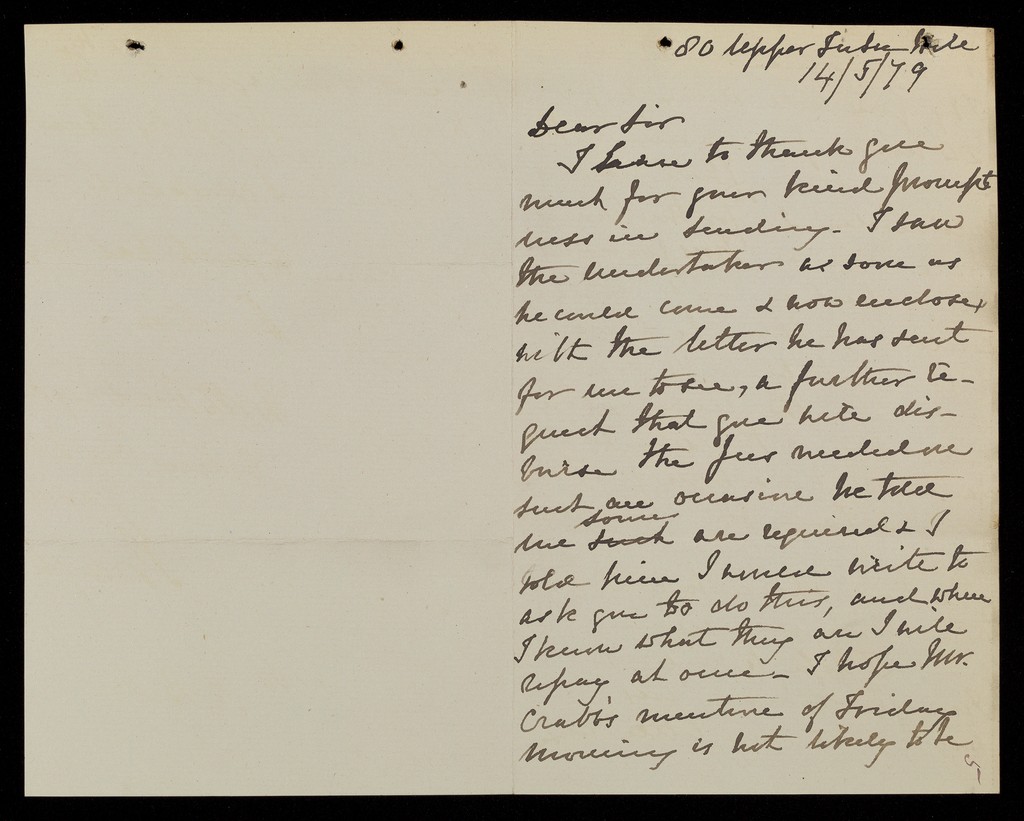 80 Upper Tulse Hill
14/5/79
Dear Sir
I have to thank you
much for your kind prompt
ness in sending - I saw
the undertaker as soon as
he could come & now enclose,
with the letter he has sent
for me to see, a further re-
quest that you will dis-
burse the fees needed on
such an occasion he told
me such some are required & I
told him I would write to
ask you to do this, and when
I know what they are I will
repay at once - I hope Mr.
Crabb's mention of Friday
morning is not likely to be